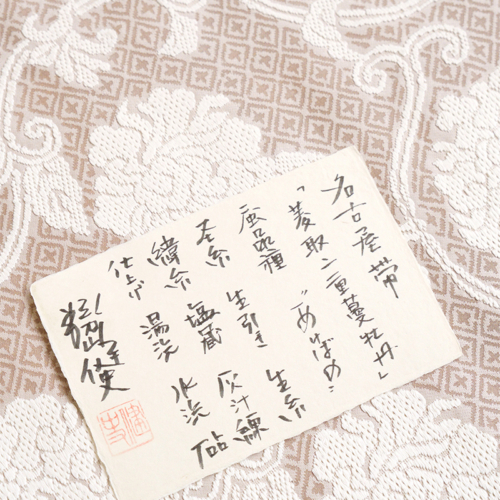 名古屋帯
「菱取二重蔓牡丹」
蚕品種 "あけぼの"
経糸 生引き 生糸
緯糸 塩蔵 灰汁練
仕上げ 湯洗 水洗 砧